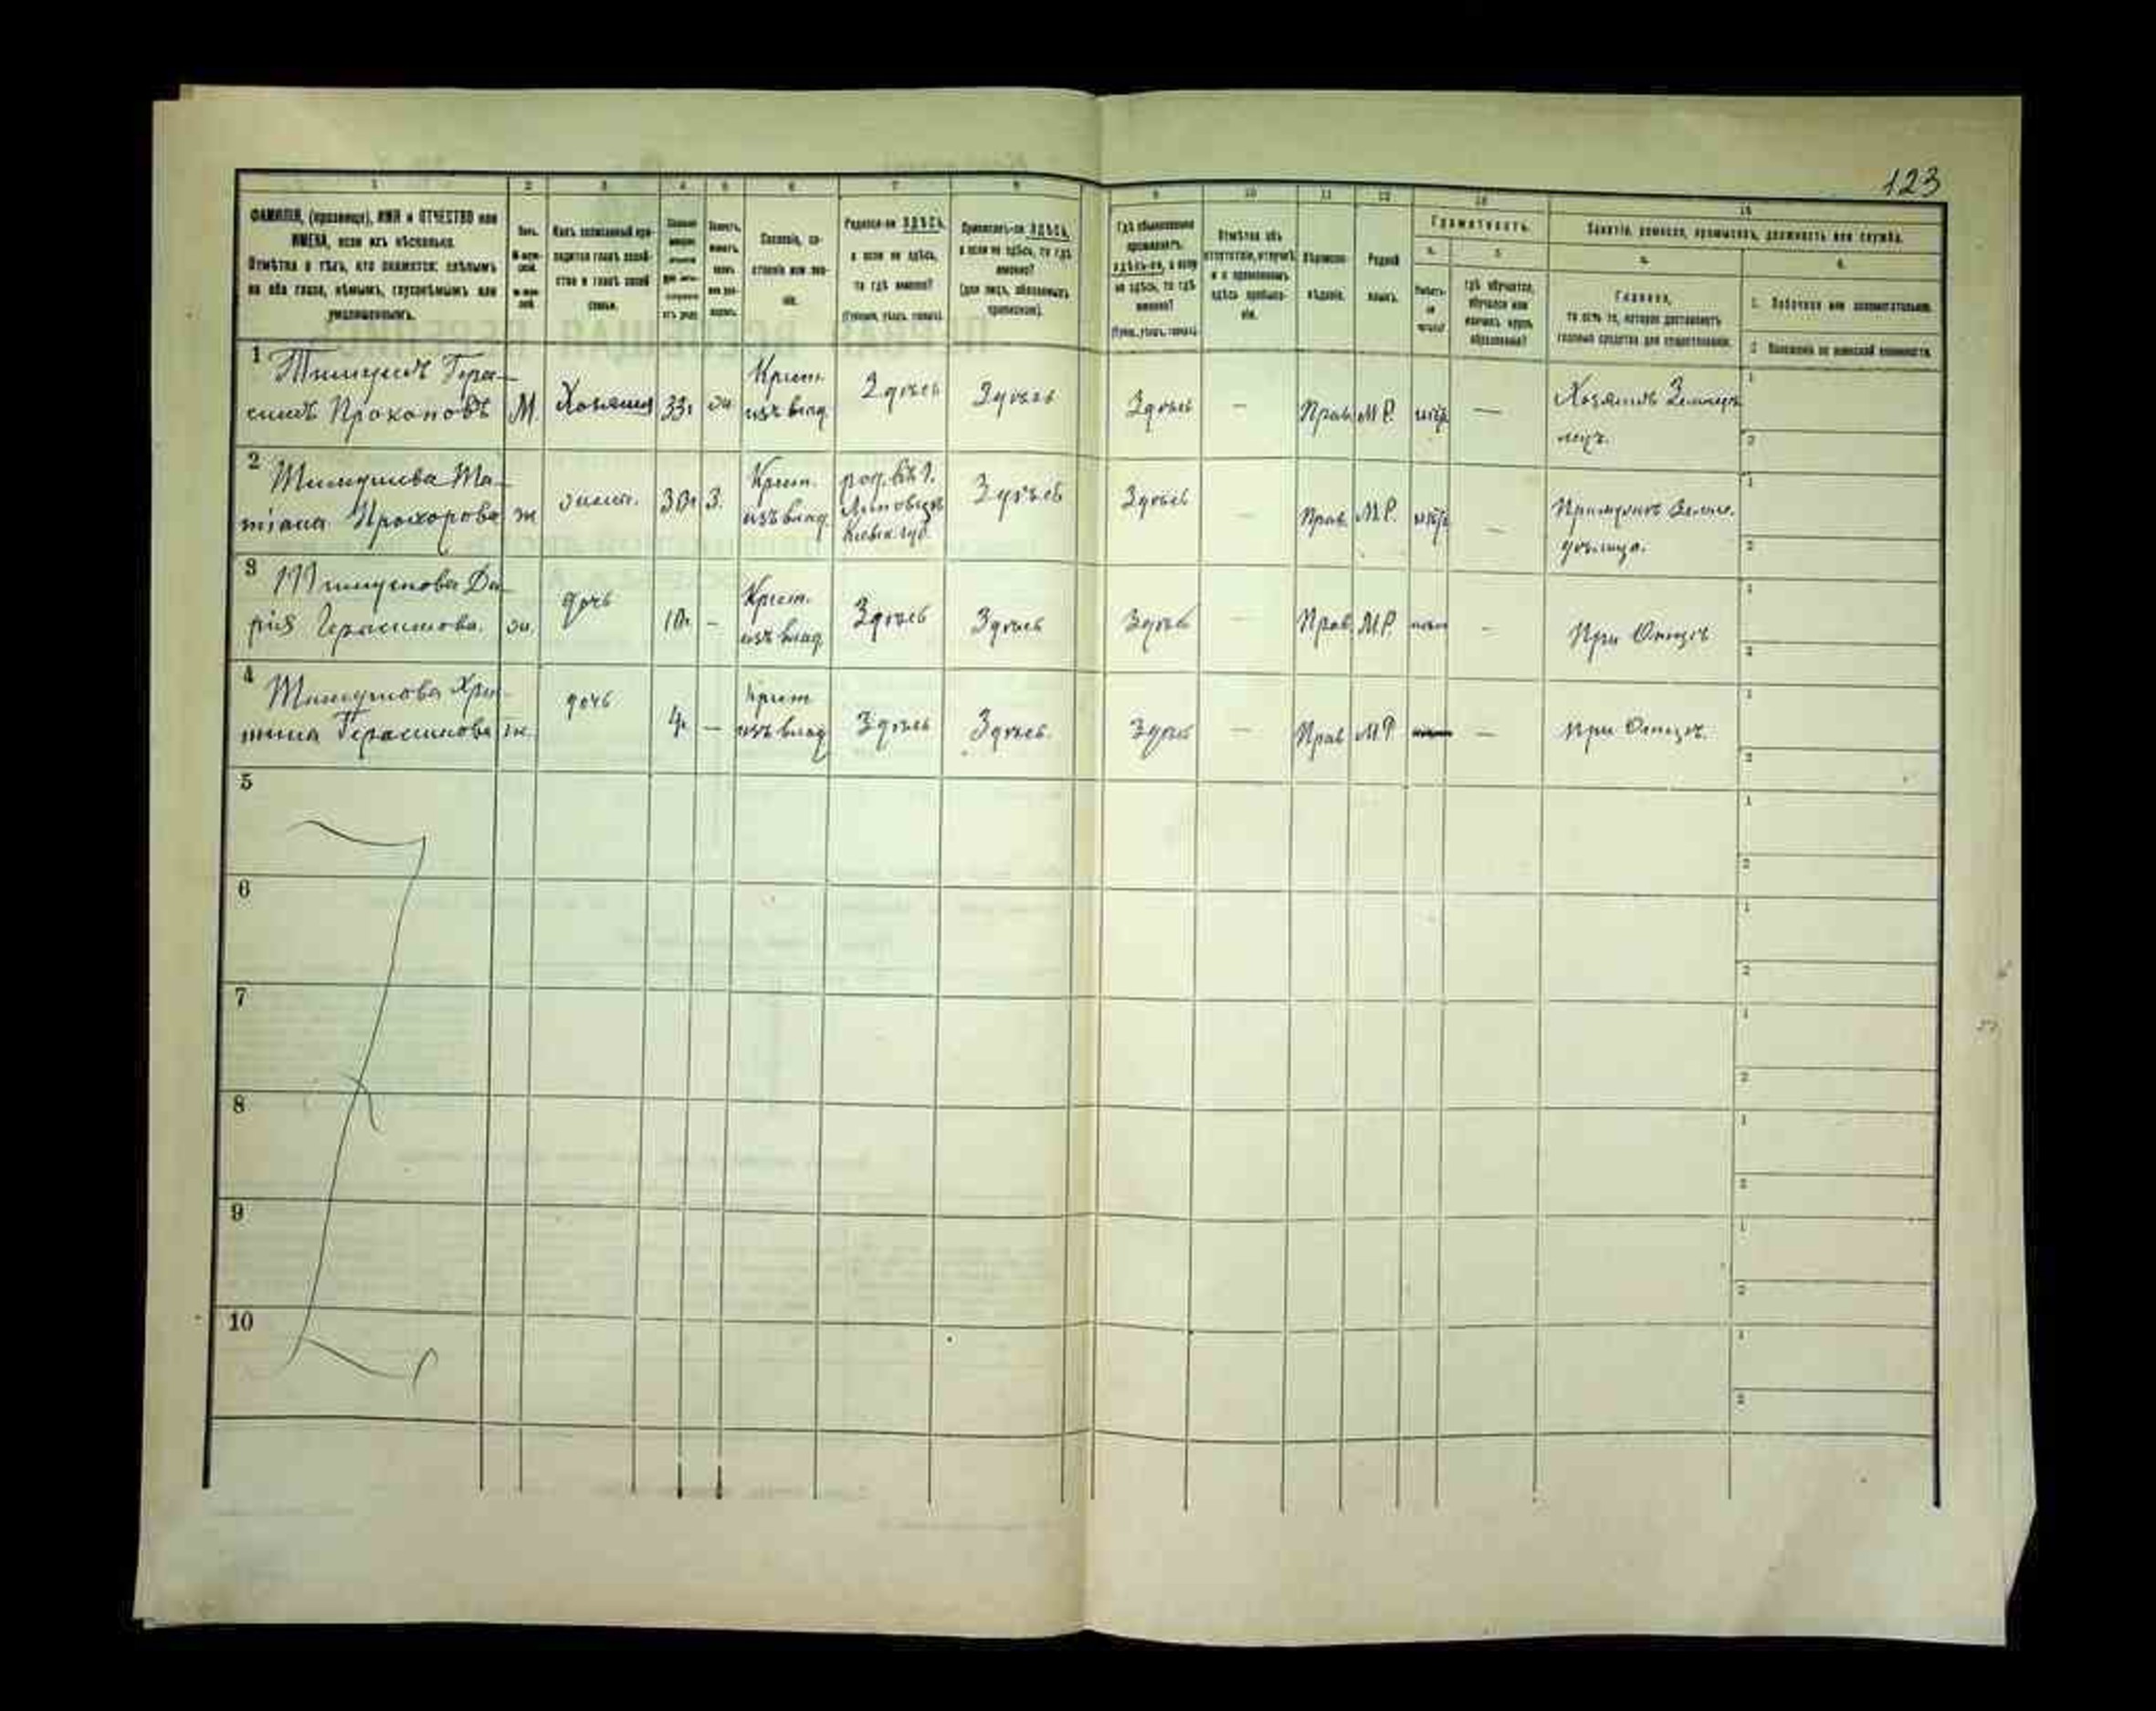 123
1 2 3 4 5 6 7 8 9 10 11 12 13 14
ФАМИЛІЯ, (прозвище), ИМЯ и ОТЧЕСТВО или
ИМЕНА, если ихъ нѣсколько.
Отмѣтка о тѣхъ, кто окажется: слѣпымъ
на оба глаза, нѣмымъ, глухонѣмымъ или
умалишеннымъ.
Полъ.
Какъ записанный при-
ходится главѣ хозяй-
ства и главѣ своей
семьи.
Сословіе, со-
стояніе или зва-
ніе.
Родился-ли ЗДѢСЬ,
а если не здѣсь,
то гдѣ именно?
(Губернія, уѣздъ, городъ).
Приписанъ-ли ЗДѢСЬ,
а если не здѣсь, то гдѣ
именно?
(для лицъ, обязанныхъ
припискою).
Гдѣ обыкновенно
проживаетъ:
здѣсь-ли, а если
не здѣсь, то гдѣ
именно?
(Губ., уѣздъ, городъ).
Отмѣтка объ
отсутствіи, отлучкѣ
и о временномъ
здѣсь пребыва-
ніи.
Вѣроиспо-
вѣданіе.
Родной
языкъ.
Грамотность.
а. б.
Умѣетъ-
ли
читать?
гдѣ обучается,
обучался или
кончилъ курсъ
образованія?
Занятіе, ремесло, промыселъ, должность или служба.
Главное,
то есть то, которое доставляетъ
главныя средства для существованія.
1. Побочное или вспомогательное.
2. Положеніе по воинской повинности.
1 Гера-
симъ Прокоповъ М. Хозяинъ 33 ж. Крест. изъ влад. Здѣсь Здѣсь Здѣсь — Прав. М.Р. нѣтъ — Хозяинъ
2 Та-
тіана Прохорова ж 30 З. Крест. изъ влад. род. въ Липовецк. Кіевск. губ. Здѣсь Здѣсь — Прав. М.Р. нѣтъ —
3 Да-
рія Герасимова. ж. дочь 10 — Крест. изъ влад. Здѣсь Здѣсь Здѣсь — Прав. М.Р. — При Отцѣ
4 Хри-
стина Герасимова ж. дочь 4 — крест изъ влад Здѣсь Здѣсь. Здѣсь — Прав М.Р — при Отцѣ.
5
6
7
8
9
10